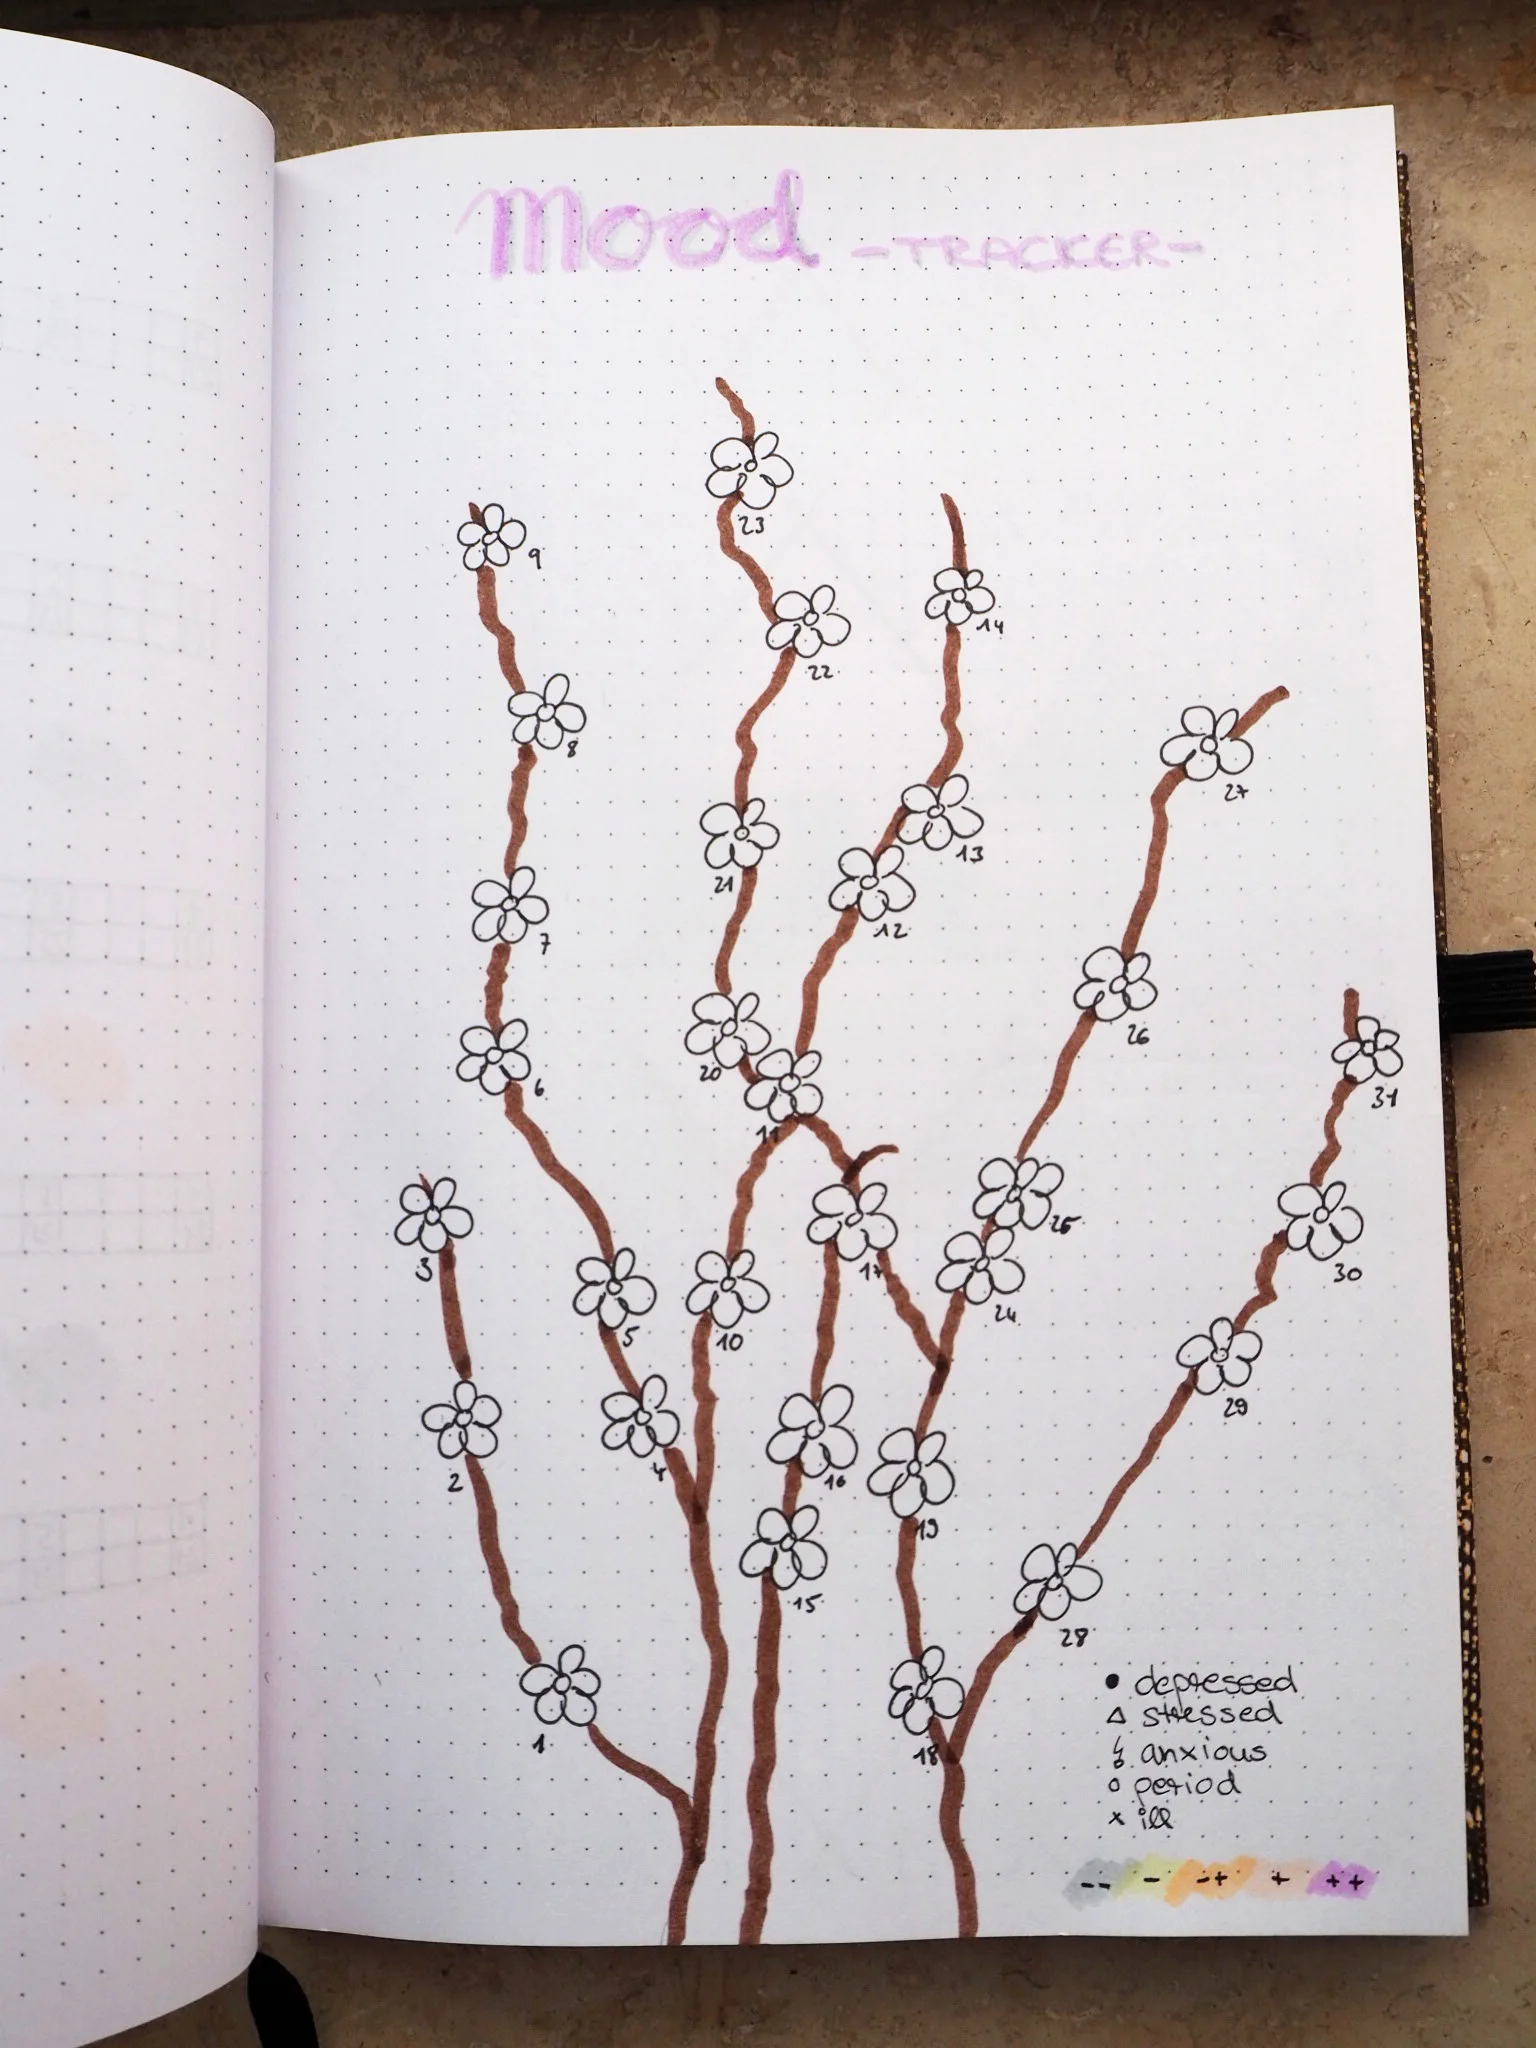 Mood -TRACKER-
23
9
14
22
8
27
13
21
12
7
26
20
6
11
31
25
3
17
30
24
5
10
29
4
2
16
19
15
28
1
18
depressed
stressed
anxious
period
ill
-- - -+ + ++